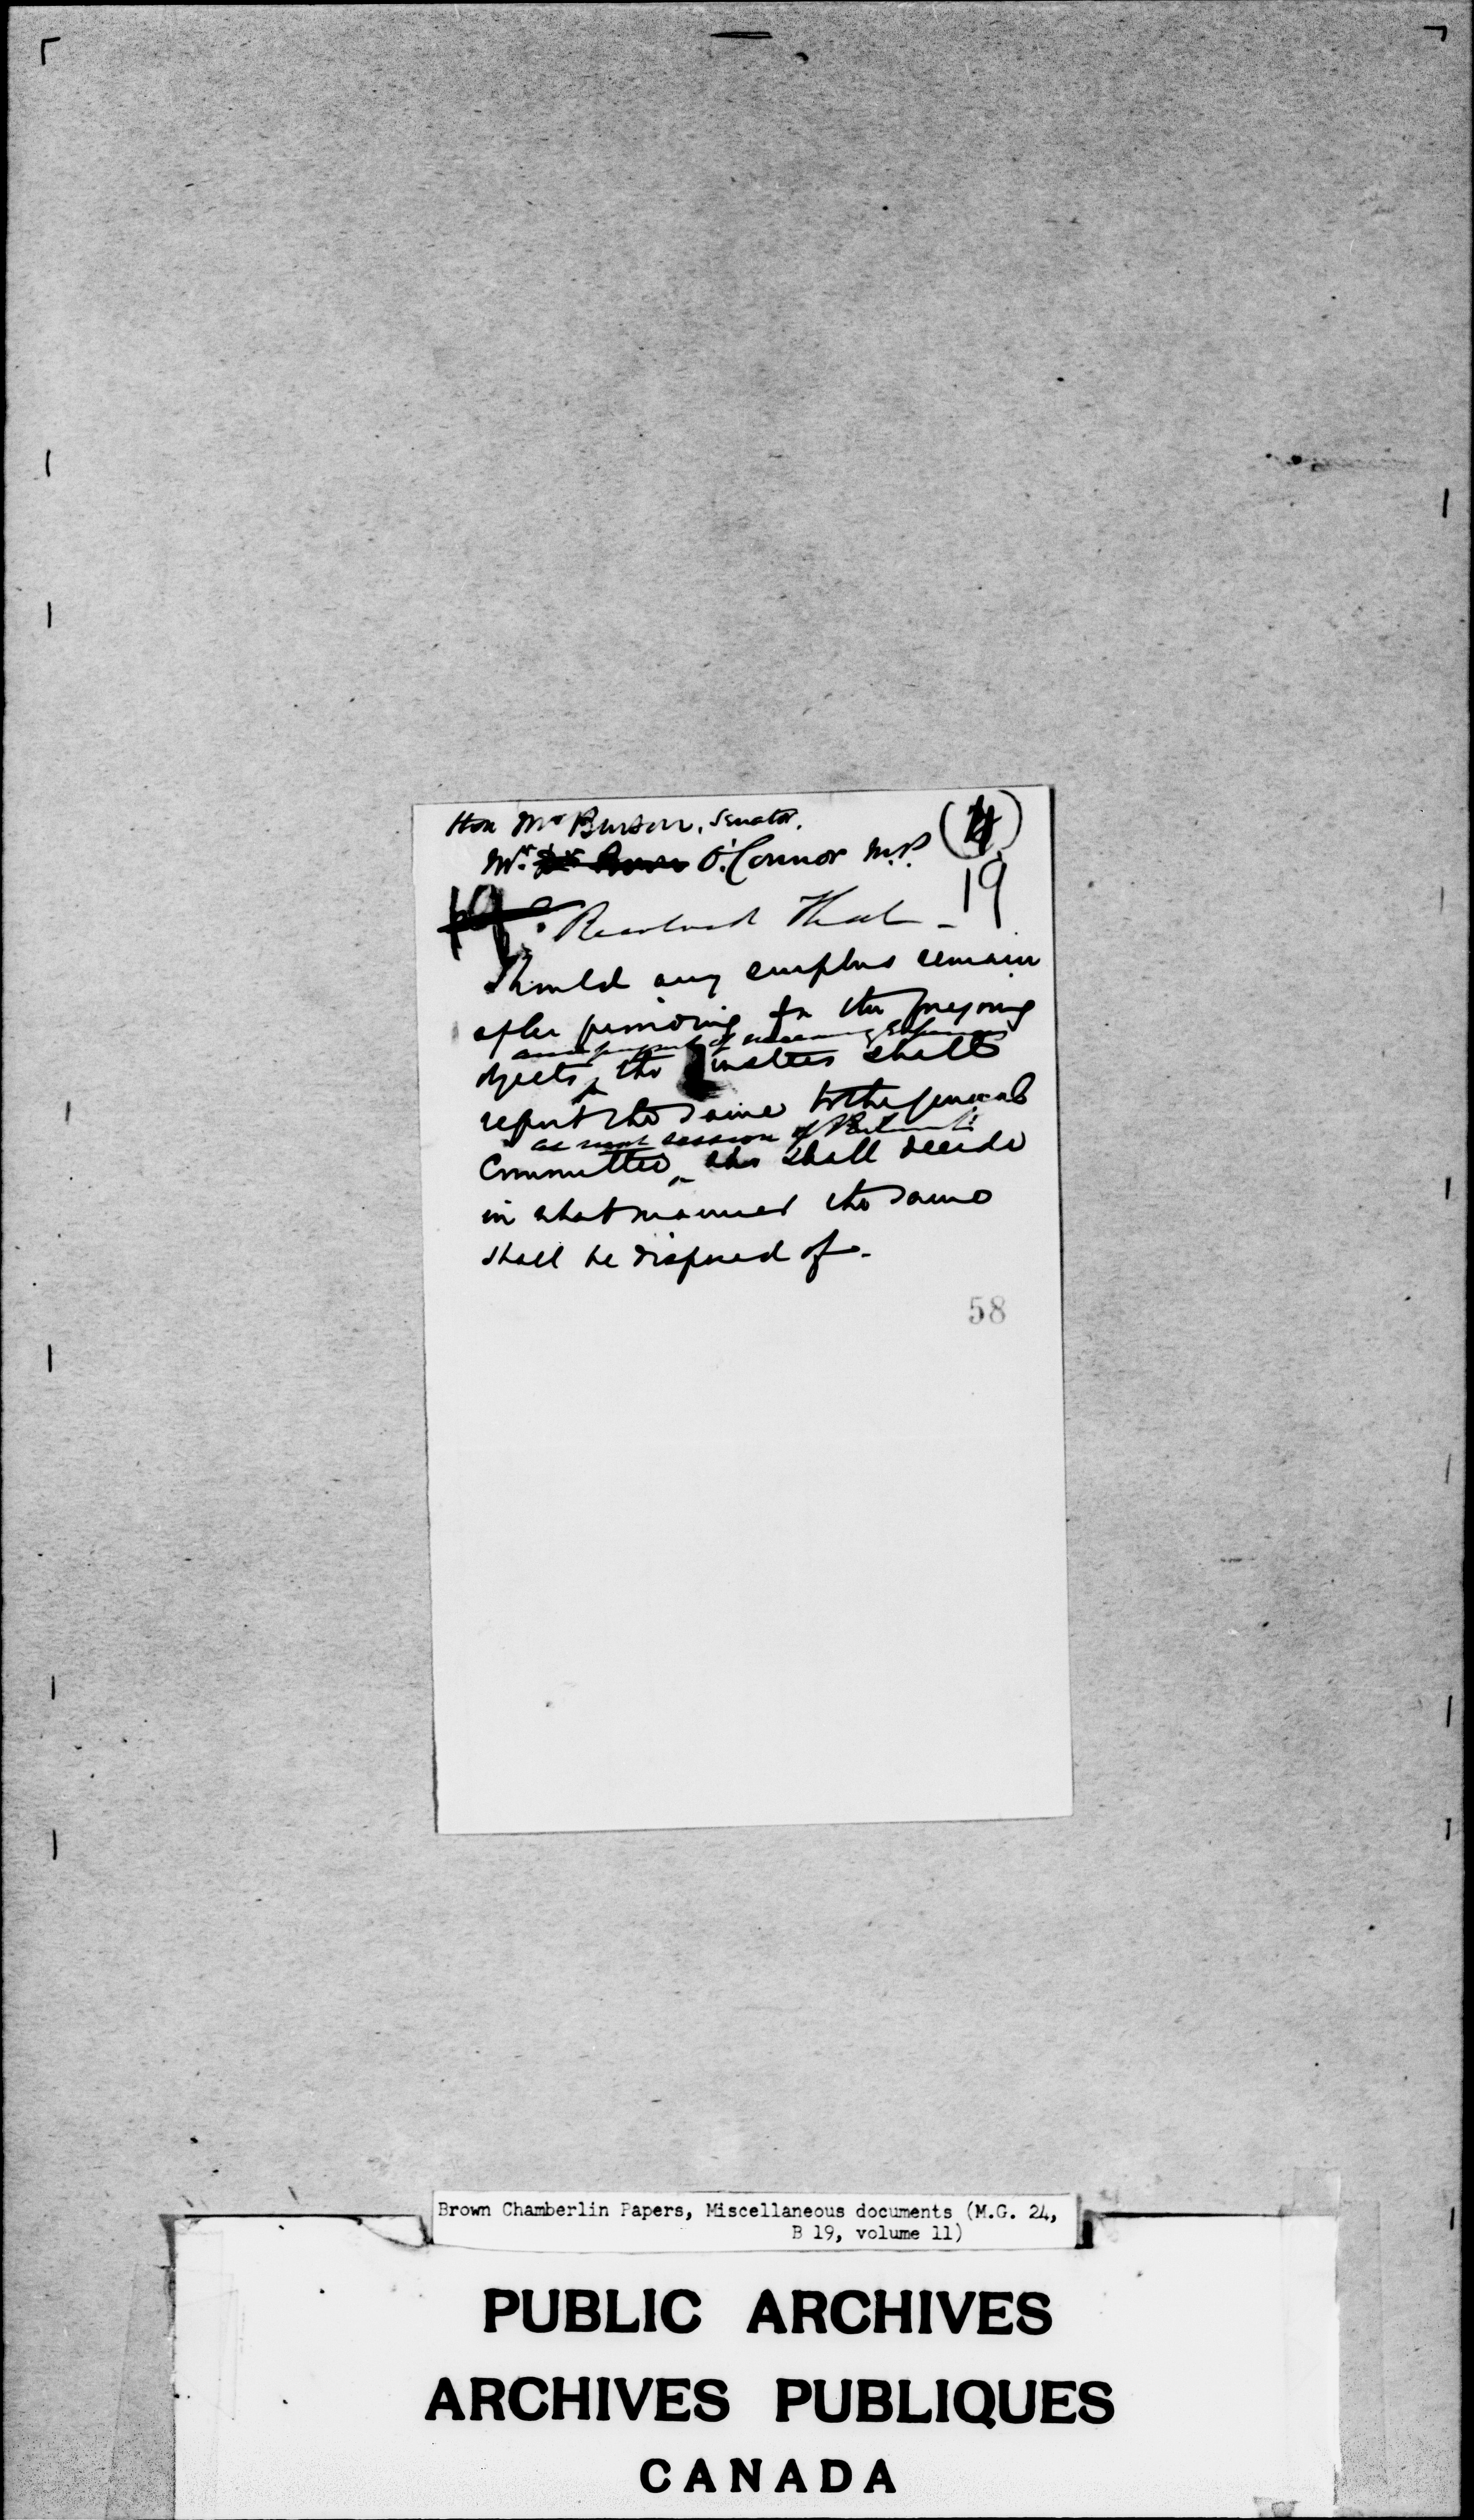 Hon Mr Benson, Senator.
Mr. O'Connor M.P.
19
19. Resolved That -
Should any surplus remain
after providing for the foregoing
and payment of necessary expenses
objects, the Trustees shall
report the same to the general
at next session of Parliament
Committee who shall decide
in what manner the same
shall be disposed of.
58
Brown Chamberlin Papers, Miscellaneous documents (M.G. 24,
B 19, volume 11)
PUBLIC ARCHIVES
ARCHIVES PUBLIQUES
CANADA